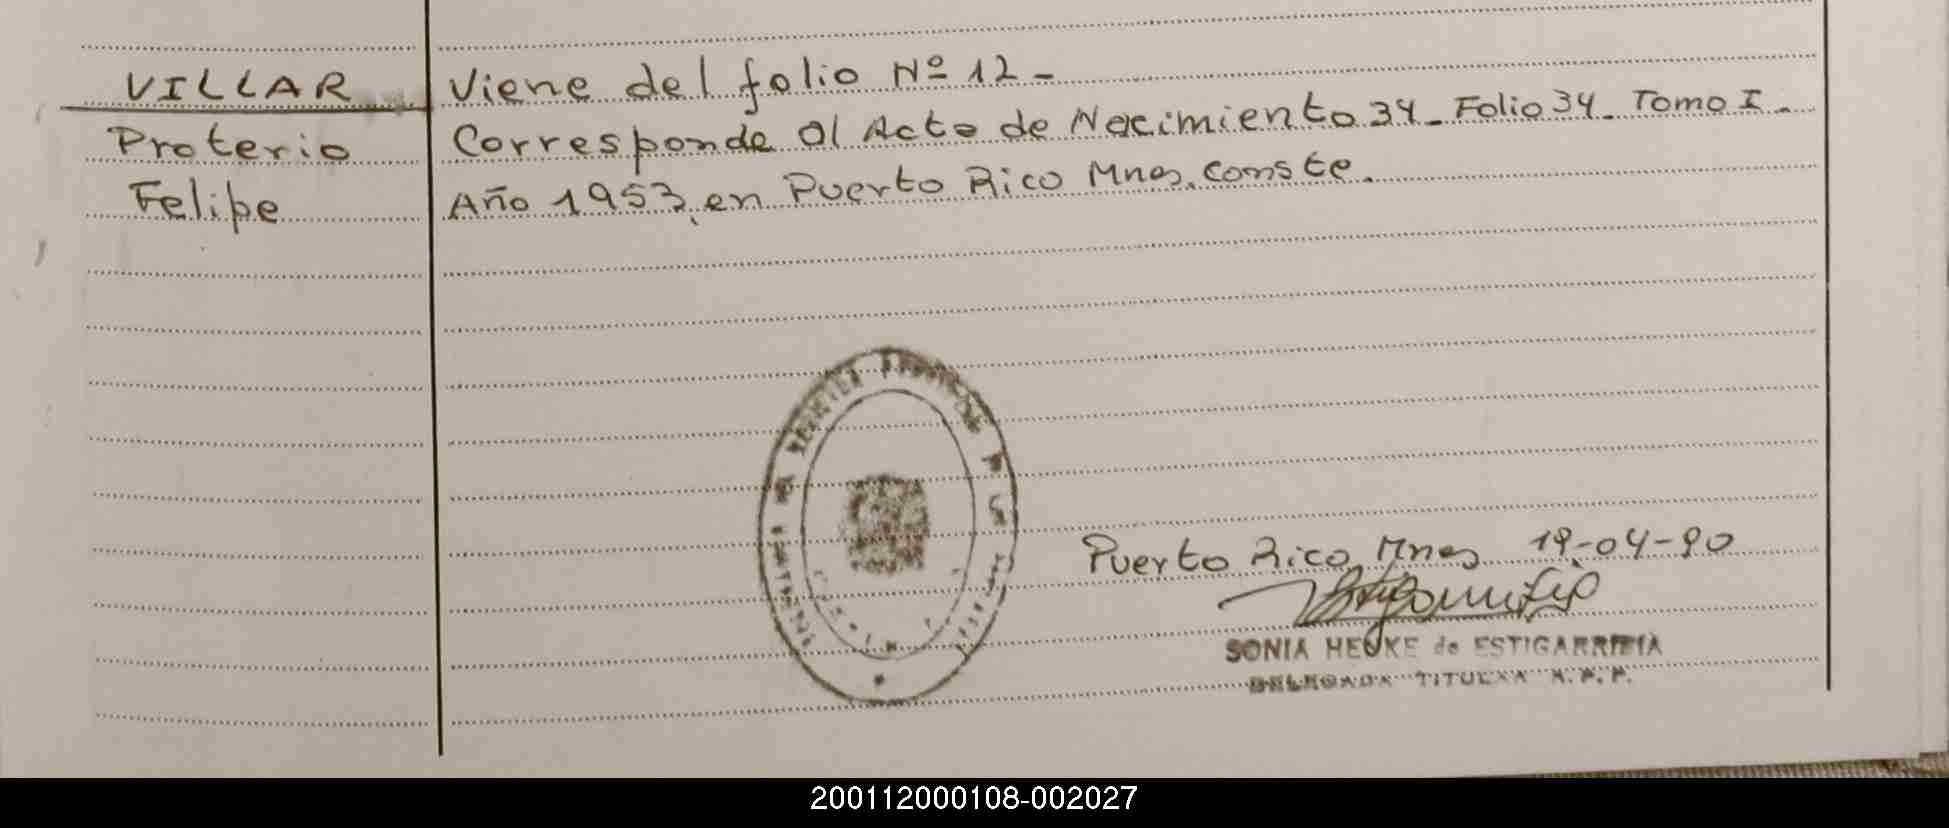 VILLAR
Proterio
Felipe
Viene del folio Nº 12 -
Corresponde al Acta de Nacimiento 34 - Folio 34 - Tomo I -
Año 1953, en Puerto Rico Mnes. conste.
Puerto Rico, Mnes 19-04-90
SONIA HENKE de ESTIGARRIBIA
DELEGADA TITULAR R. P. P.
200112000108-002027